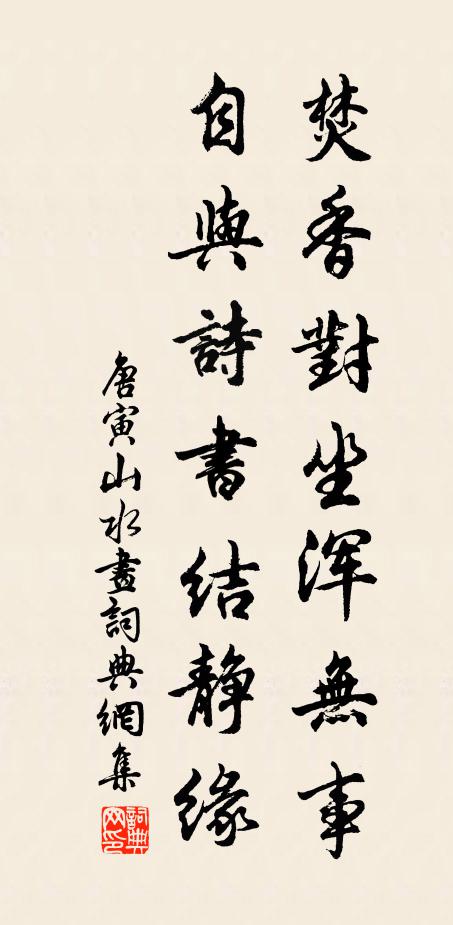 焚香對坐渾無事
自與詩書結靜緣
唐寅山水畫詞典網集
詞典網印